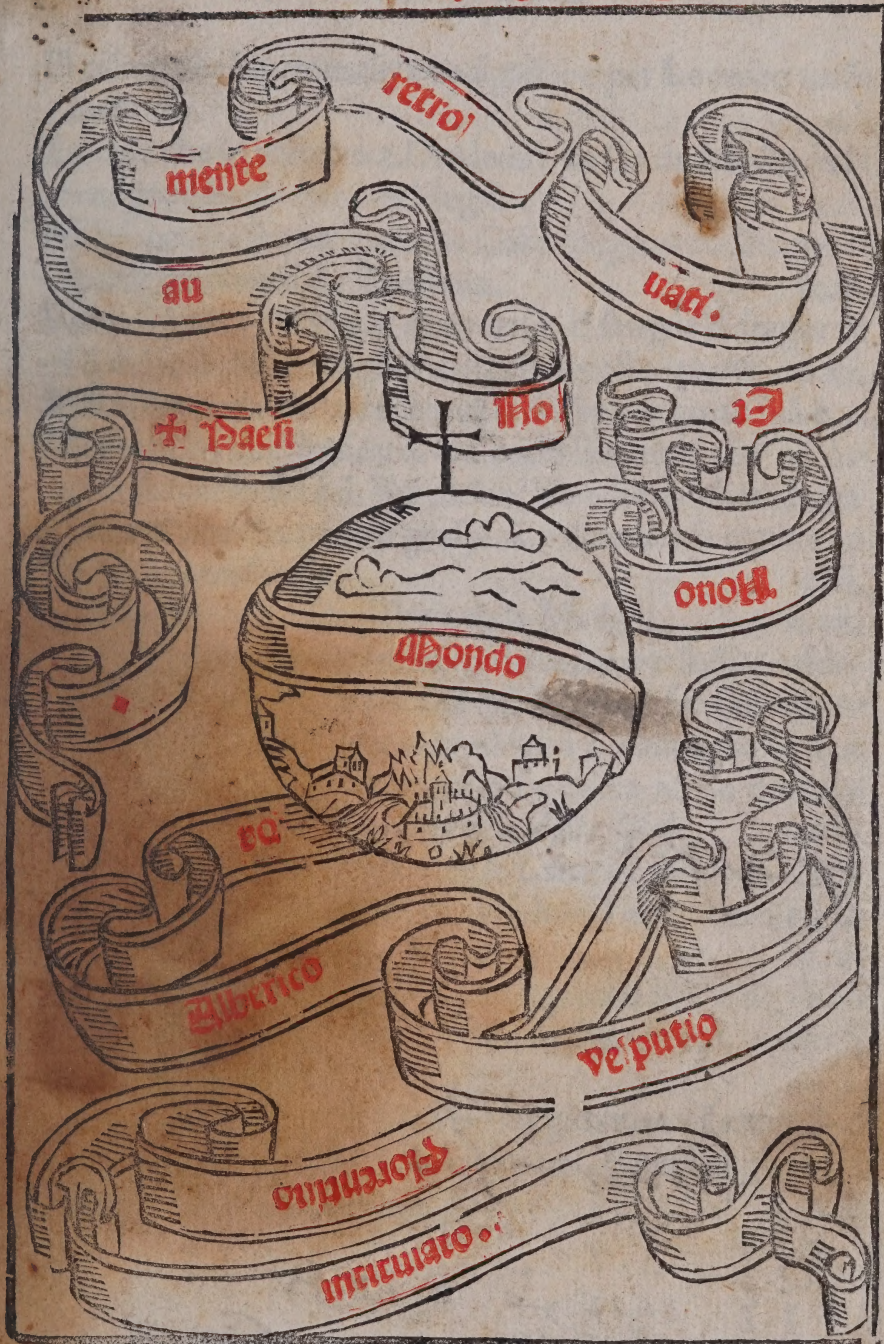 ✠ Paesi
No
ua
mente
retro
uati.
Et
Nouo
Mondo
Da
Alberico
Vesputio
Florentino
intitulato.